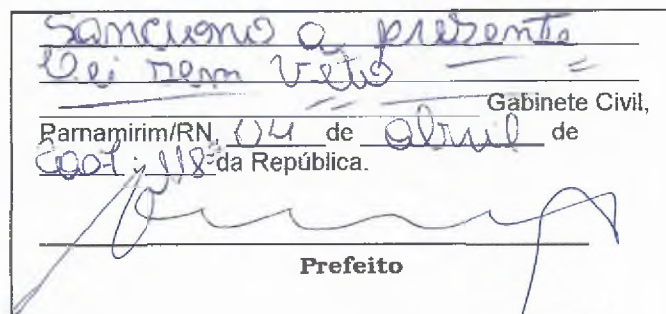 Sanciono a presente
Lei sem Veto
Gabinete Civil,
Parnamirim/RN, 04 de abril de
2007; 118º da República.
Prefeito